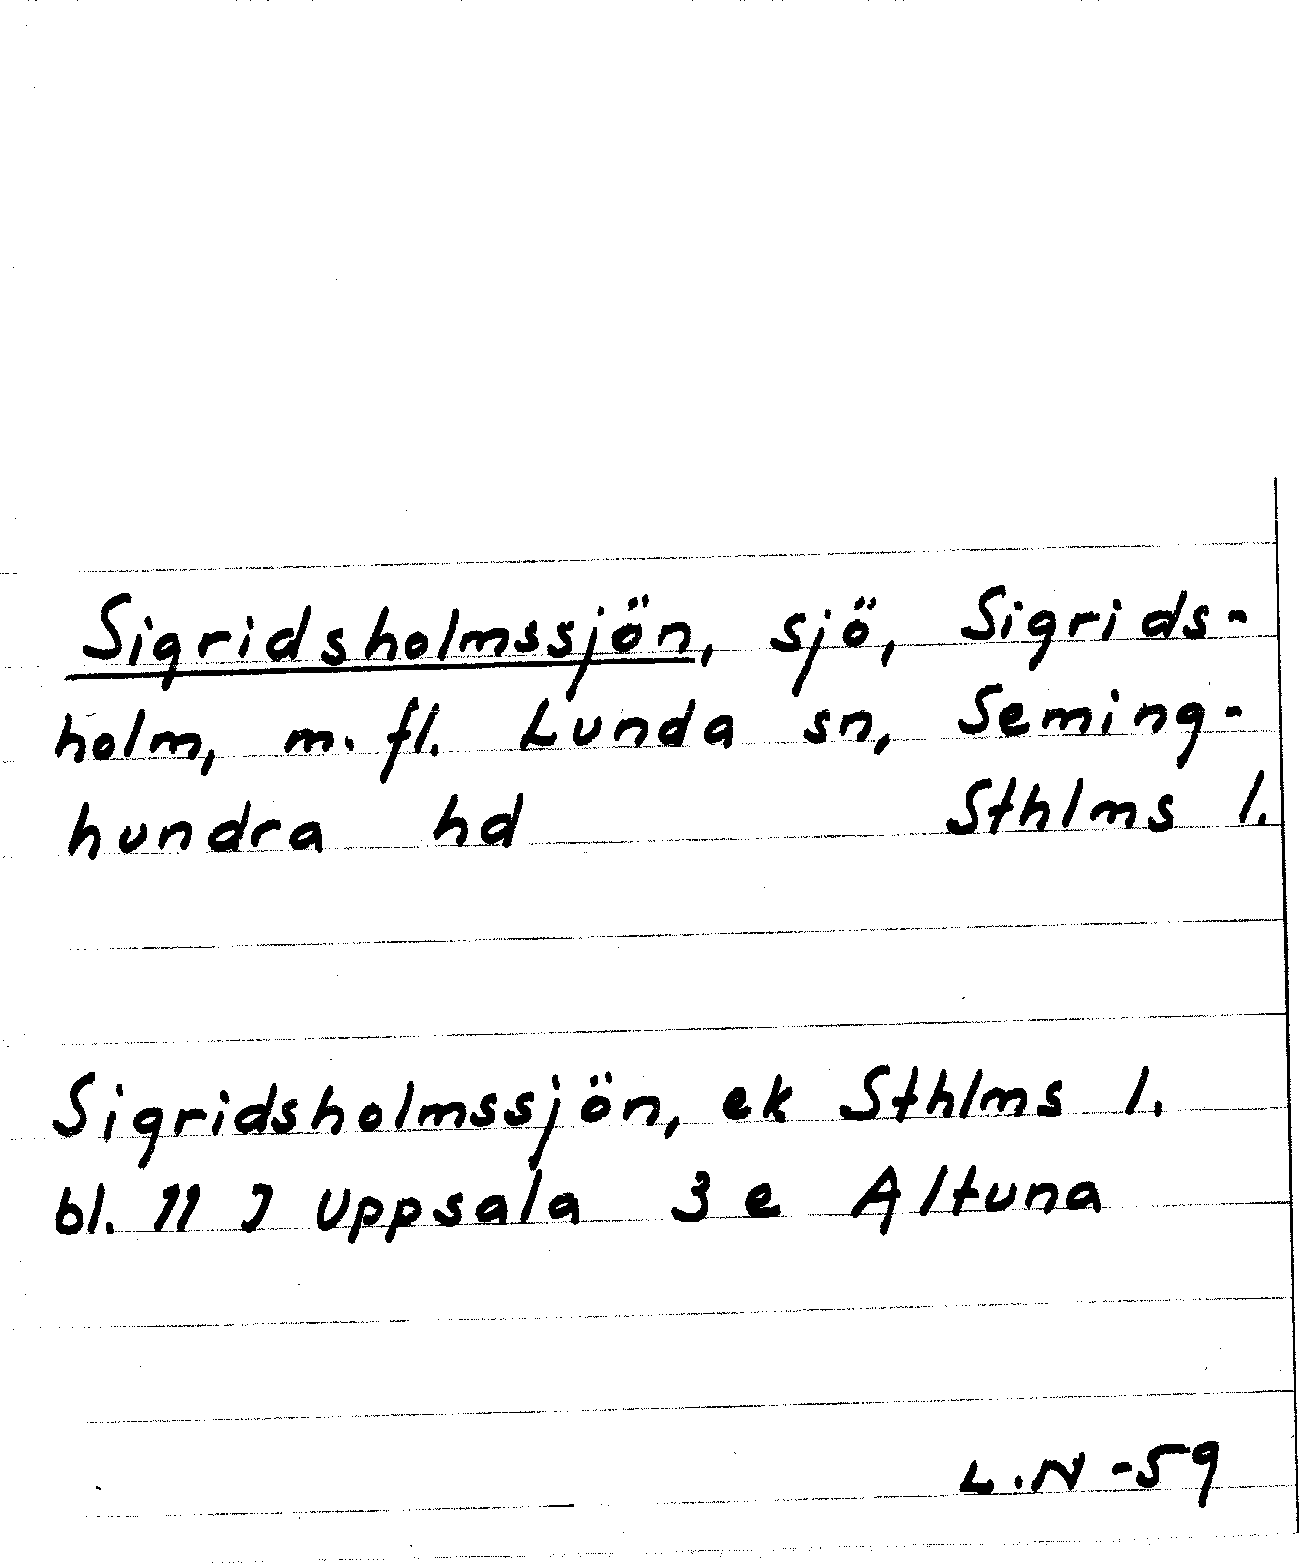 Sigridsholmssjön, sjö, Sigrids-
holm, m. fl. Lunda sn, Seming-
hundra hd Sthlms l.
Sigridsholmssjön, ek Sthlms l.
bl. 11 J Uppsala 3 e Altuna
L.N -59